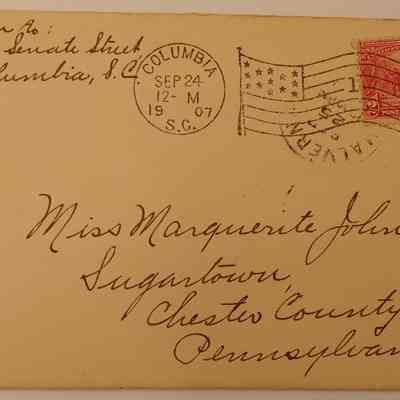 to:
Senate Street
Columbia, S.C.
COLUMBIA
SEP 24
12- M
1907
S.C.
1
MALVERN
2
Miss Marguerite John
Sugartown,
Chester County
Pennsylvan